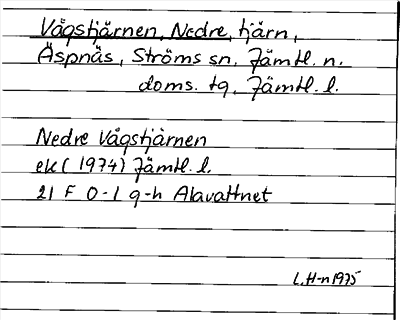 Vågstjärnen, Nedre, tjärn,
Äspnäs, Ströms sn, Jämtl. n.
doms. tg, Jämtl. l.
Nedre Vågstjärnen
ek (1974) Jämtl. l.
21 F 0-1 g-h Alavattnet
L.H-n 1975